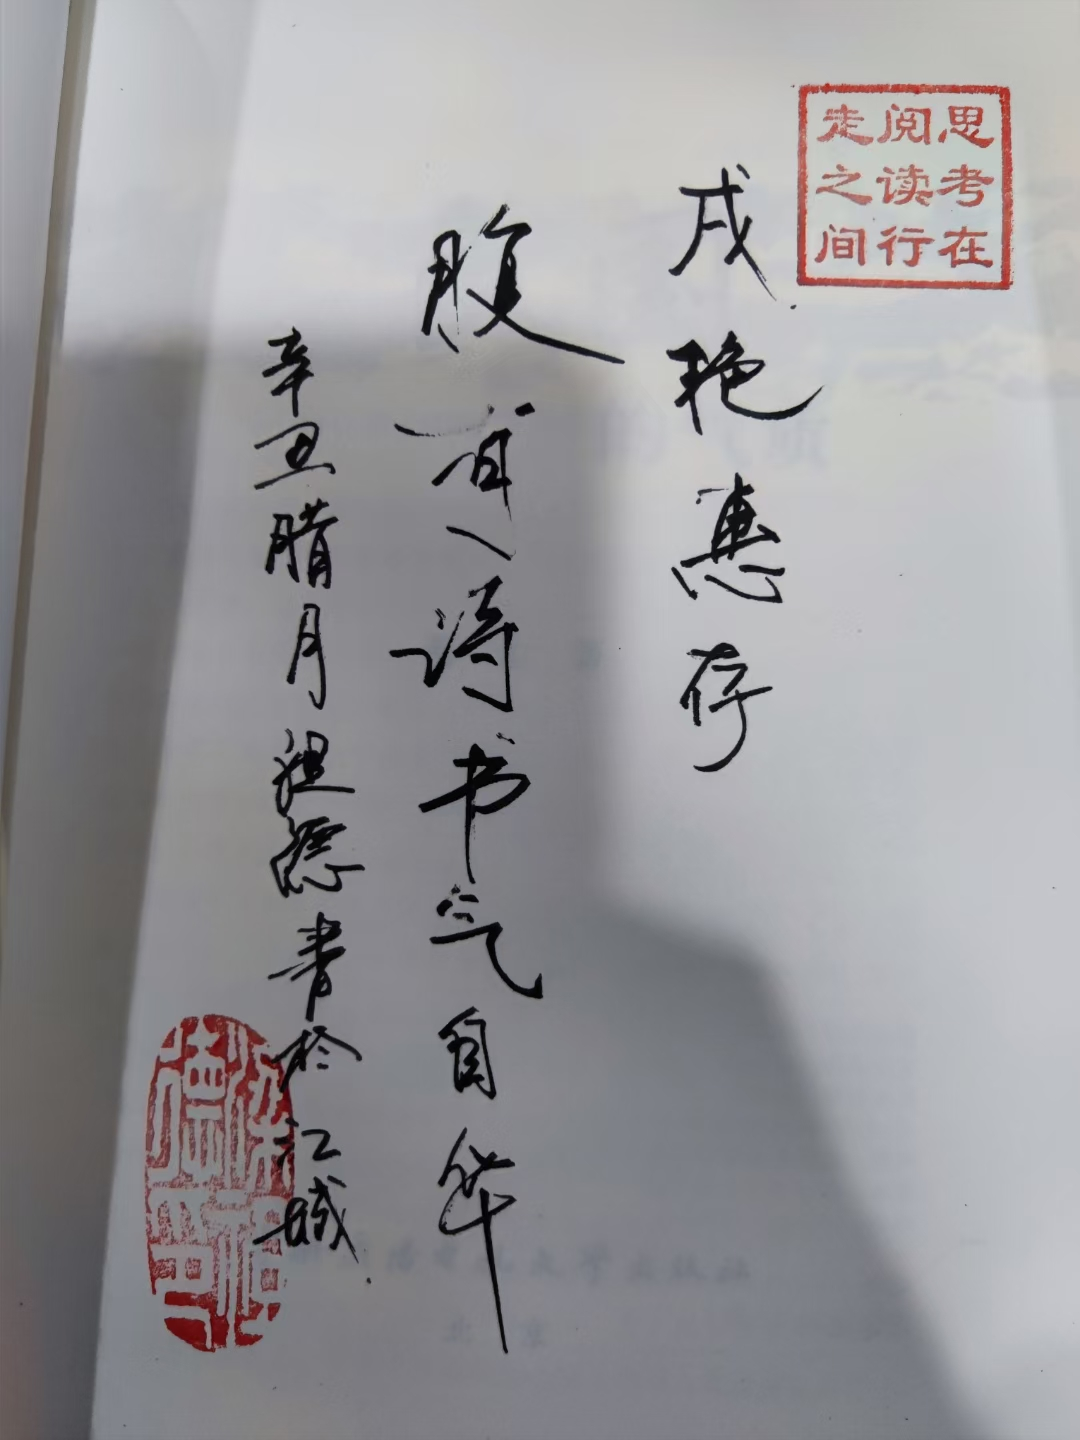 思考在
阅读行
走之间
戌艳惠存
腹有诗书气自华
辛丑腊月祖德书于江城